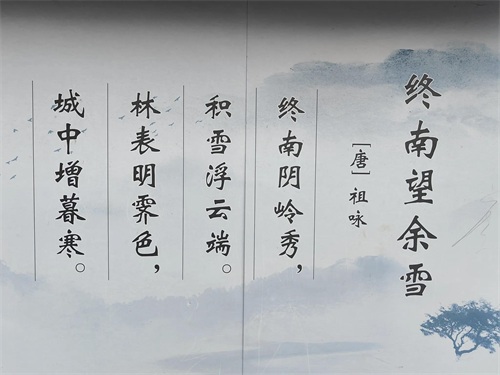 终南望余雪
[唐]祖咏
终南阴岭秀，
积雪浮云端。
林表明霁色，
城中增暮寒。